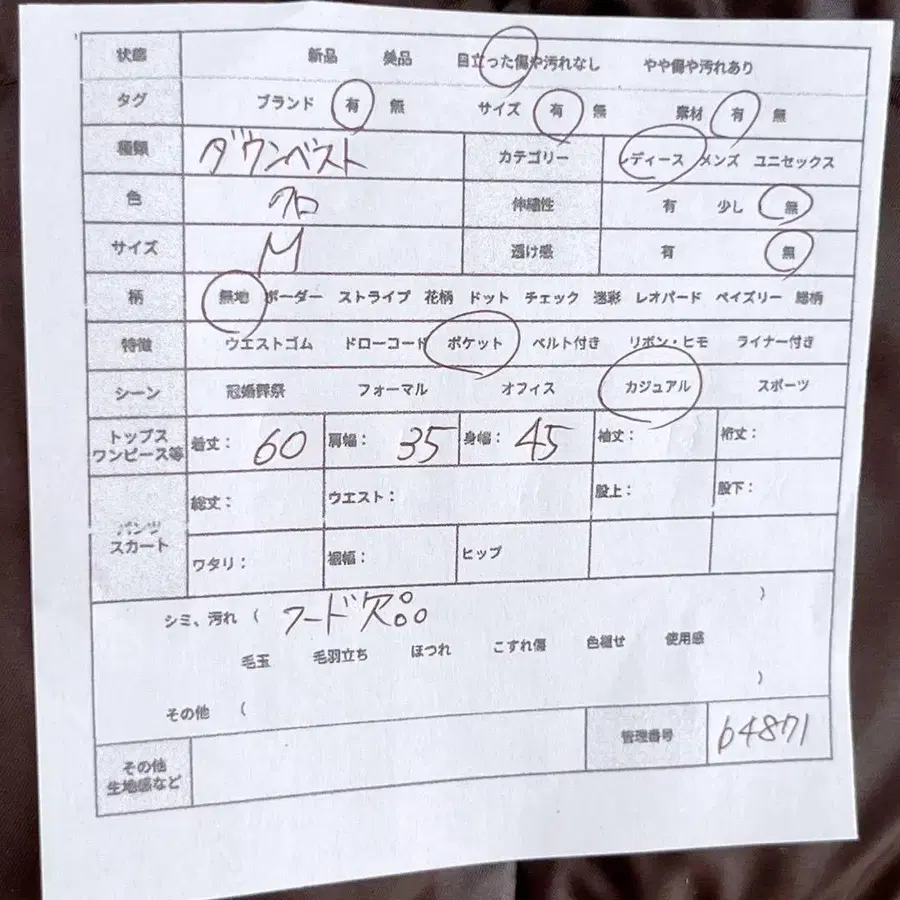 状態 新品 美品 目立った傷や汚れなし やや傷や汚れあり
タグ ブランド 有 無 サイズ 有 無 素材 有 無
種類 ダウンベスト カテゴリー レディース メンズ ユニセックス
色 クロ 伸縮性 有 少し 無
サイズ M 透け感 有 無
柄 無地 ボーダー ストライプ 花柄 ドット チェック 迷彩 レオパード ペイズリー 総柄
特徴 ウエストゴム ドローコード ポケット ベルト付き リボン・ヒモ ライナー付き
シーン 冠婚葬祭 フォーマル オフィス カジュアル スポーツ
トップス
ワンピース等 着丈: 60 肩幅: 35 身幅: 45 袖丈: 裄丈:
パンツ
スカート 総丈: ウエスト: 股上: 股下:
ワタリ: 裾幅: ヒップ
シミ、汚れ ( フード欠品 )
毛玉 毛羽立ち ほつれ こすれ傷 色褪せ 使用感
その他 ( )
その他
生地感など 管理番号 64871